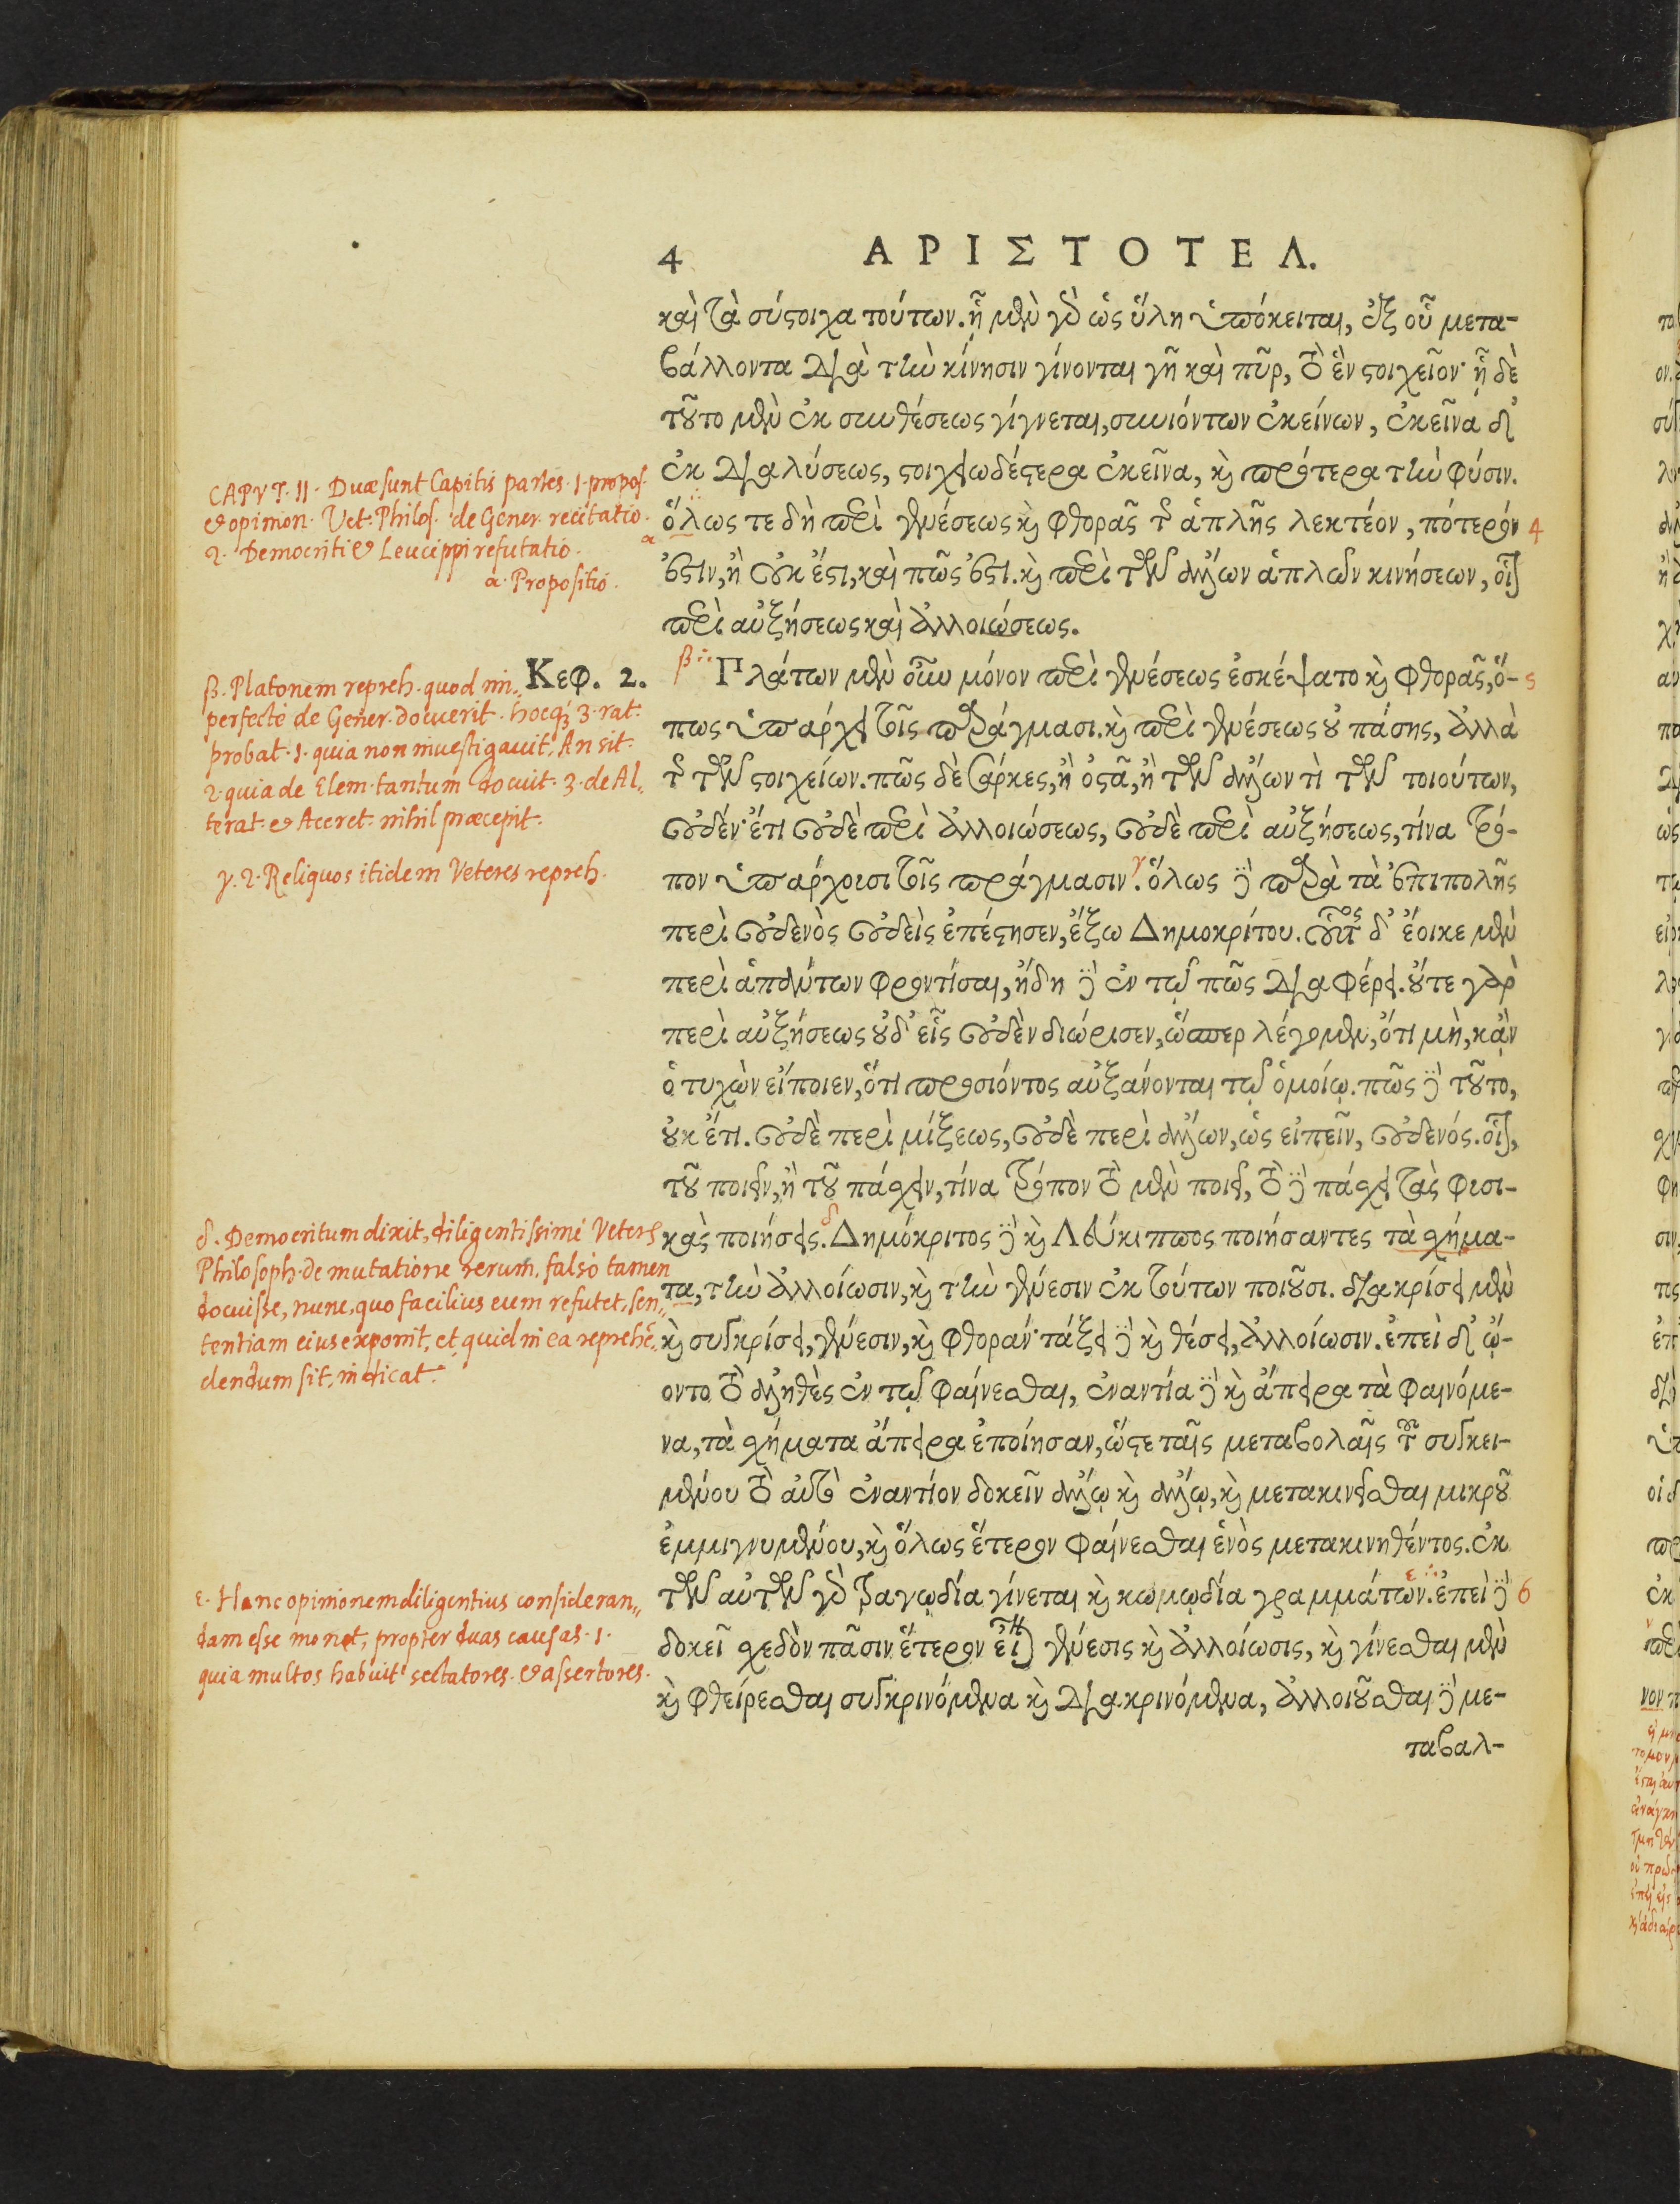 4 ΑΡΙΣΤΟΤΕΛ.
καὶ τὰ σύςοιχα τούτων. ᾗ μὲν γὸ ὡς ὕλη ὑπόκειται, ἐξ οὗ μετα-
βάλλοντα διὰ τὴν κίνησιν γίνονται γῆ καὶ πῦρ, τὸ ἓν ςοιχεῖον· ᾗ δὲ
τοῦτο μὲν ἐκ συνθέσεως γίγνεται, συνιόντων ἐκείνων, ἐκεῖνα δ'
ἐκ διαλύσεως, ςοιχειωδέςερα ἐκεῖνα, καὶ πρότερα τὴν φύσιν.
ὅλως τε δὴ περὶ γενέσεως καὶ φθορᾶς τῆς ἁπλῆς λεκτέον, πότερον 4
ἐςὶν, ἢ οὐκ ἔςι, καὶ πῶς ἐςι. καὶ περὶ τῶν ἄλλων ἁπλῶν κινήσεων, οἷον
περὶ αὐξήσεως καὶ ἀλλοιώσεως.
Κεφ. 2.
β Πλάτων μὲν οὖν μόνον περὶ γενέσεως ἐσκέψατο καὶ φθορᾶς, ὅ- 5
πως ὑπάρχει τοῖς πράγμασι. καὶ περὶ γενέσεως οὐ πάσης, ἀλλὰ
τῆς τῶν ςοιχείων. πῶς δὲ σάρκες, ἢ ὀςᾶ, ἢ τῶν ἄλλων τὶ τῶν τοιούτων,
οὐδέν· ἔτι οὐδὲ περὶ ἀλλοιώσεως, οὐδὲ περὶ αὐξήσεως, τίνα τρό-
πον ὑπάρχουσι τοῖς πράγμασιν. γ ὅλως δὲ παρὰ τὰ ἐπιπολῆς
περὶ οὐδενὸς οὐδεὶς ἐπέςησεν, ἔξω Δημοκρίτου. οὗτος δ' ἔοικε μὲν
περὶ ἁπάντων φροντίσαι, ἤδη δὲ ἐν τῷ πῶς διαφέρει. οὔτε γὰρ
περὶ αὐξήσεως οὐδ' εἷς οὐδὲν διώρισεν, ὥσπερ λέγομεν, ὅτι μὴ, κἂν
ὁ τυχὼν εἴποιεν, ὅτι προσιόντος αὐξάνονται τῷ ὁμοίῳ. πῶς δὲ τοῦτο,
οὐκ ἔτι. οὐδὲ περὶ μίξεως, οὐδὲ περὶ ἄλλων, ὡς εἰπεῖν, οὐδενός. οἷον,
τοῦ ποιεῖν, ἢ τοῦ πάσχειν, τίνα τρόπον τὸ μὲν ποιεῖ, τὸ δὲ πάσχει τὰς φυσι-
κὰς ποιήσεις. δ Δημόκριτος δὲ καὶ Λεύκιππος ποιήσαντες τὰ σχήμα-
τα, τὴν ἀλλοίωσιν, καὶ τὴν γένεσιν ἐκ τούτων ποιοῦσι. διακρίσει μὲν
καὶ συγκρίσει, γένεσιν, καὶ φθοράν· τάξει δὲ καὶ θέσει, ἀλλοίωσιν. ἐπεὶ δ' ᾤ-
οντο τὸ ἀληθὲς ἐν τῷ φαίνεσθαι, ἐναντία δὲ καὶ ἄπειρα τὰ φαινόμε-
να, τὰ σχήματα ἄπειρα ἐποίησαν, ὥςε ταῖς μεταβολαῖς τοῦ συγκει-
μένου τὸ αὐτὸ ἐναντίον δοκεῖν ἄλλῳ καὶ ἄλλῳ, καὶ μετακινεῖσθαι μικροῦ
ἐμμιγνυμένου, καὶ ὅλως ἕτερον φαίνεσθαι ἑνὸς μετακινηθέντος. ἐκ
τῶν αὐτῶν γὸ τραγῳδία γίνεται καὶ κωμῳδία γραμμάτων. ε ἐπεὶ δὲ 6
δοκεῖ σχεδὸν πᾶσιν ἕτερον εἶναι γένεσις καὶ ἀλλοίωσις, καὶ γίνεσθαι μὲν
καὶ φθείρεσθαι συγκρινόμενα καὶ διακρινόμενα, ἀλλοιοῦσθαι δὲ με-
ταβαλ-
CAPVT. II. Duæ sunt Capitis partes. 1. propos.
et opinion. Vet. Philos. de Gener. recitatio.
2. Democriti et Leucippi refutatio.
α. Propositio.
β. Platonem repreh. quod im-
perfecte de Gener. docuerit. hocq; 3. rat.
probat. 1. quia non investigavit, An sit.
2. quia de Elem. tantum docuit. 3. de Al-
terat. et Accret. nihil præcepit.
γ. 2. Reliquos itidem Veteres repreh.
δ. Democritum dixit, diligentissimè Veters
Philosoph. de mutatione rerum, falsò tamen
docuisse, nunc, quo facilius eum refutet, sen-
tentiam eius exponit, et quid in ea reprehē-
dendum sit, indicat.
ε. Hanc opinionem diligentius consideran-
dam esse monet, propter duas causas. 1.
quia multos habuit sectatores et assertores.